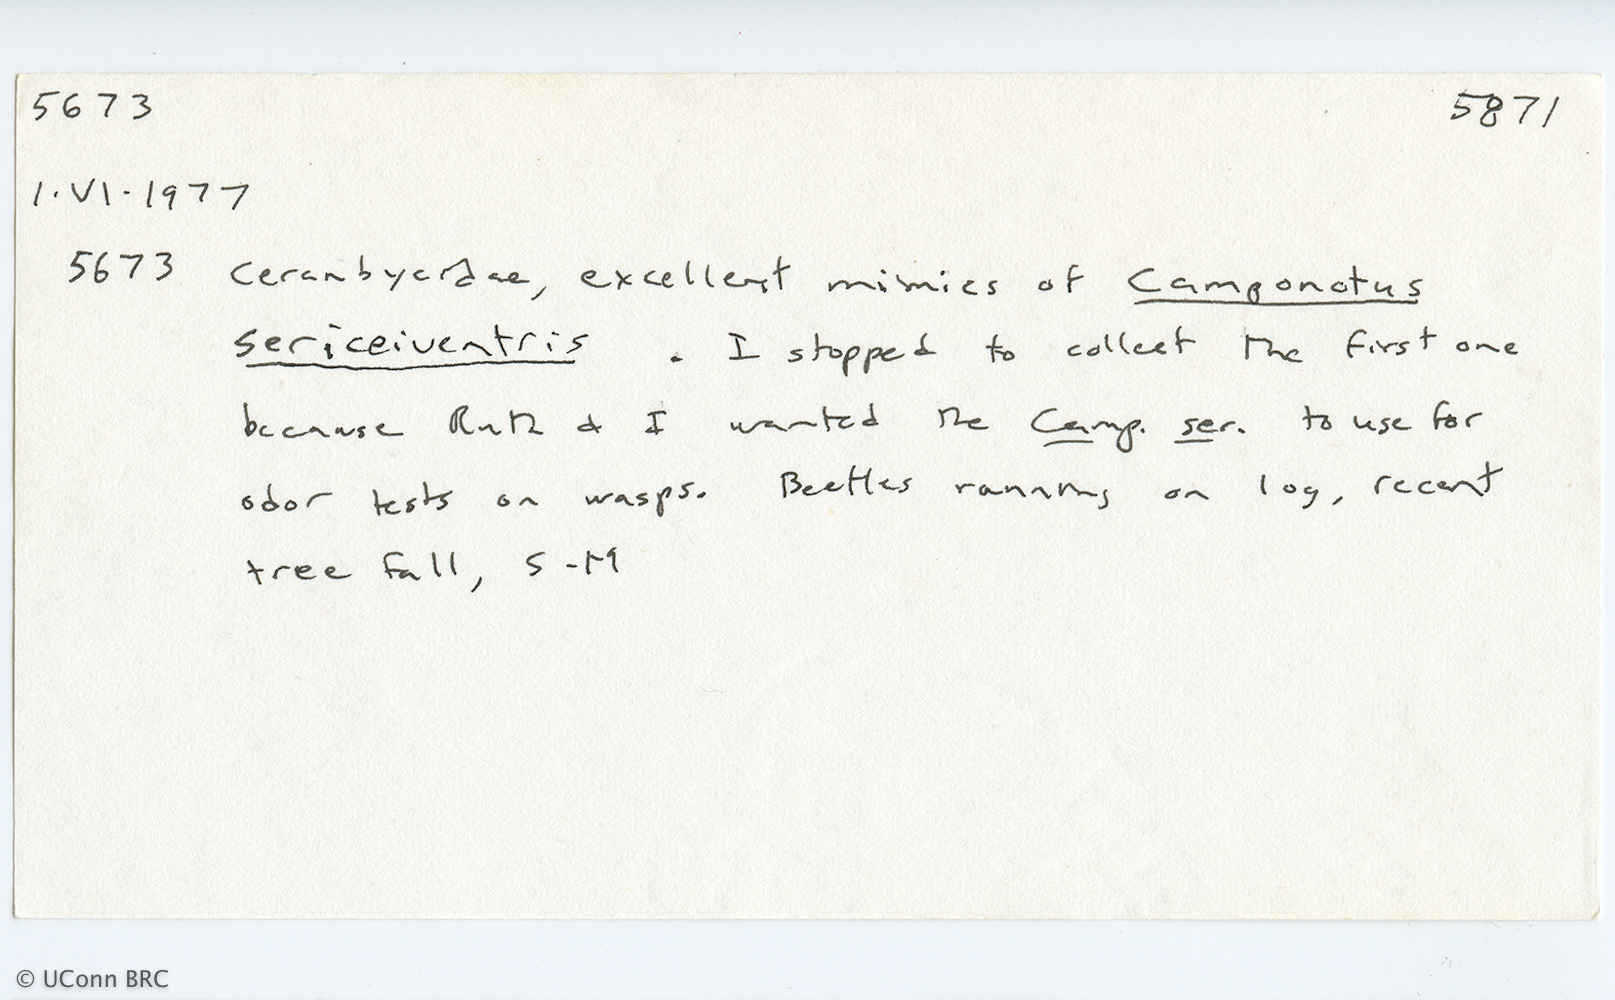 5673 5871
1·VI·1977
5673 Cerambycidae, excellent mimics of Camponotus
sericeiventris . I stopped to collect the first one
because Ruth & I wanted the Camp. ser. to use for
odor tests on wasps. Beetles running on log, recent
tree fall, S-M
© UConn BRC